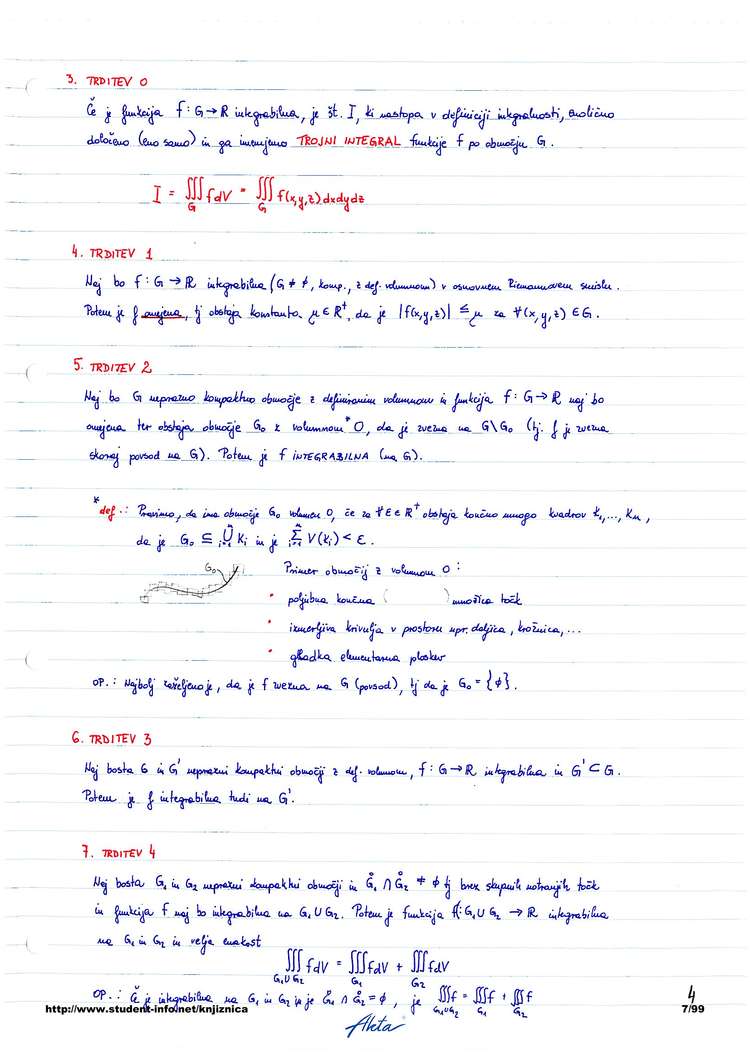 3. TRDITEV 0
Če je funkcija f: G → R integrabilna, je št. I, ki nastopa v definiciji integralnosti, enolično
določeno (eno samo) in ga imenujemo TROJNI INTEGRAL funkcije f po območju G.
I = ∭_G f dV = ∭_G f(x,y,z) dxdydz
4. TRDITEV 1
Naj bo f: G → R integrabilna (G ≠ ϕ, komp., z def. volumnom) v osnovnem Riemannovem smislu.
Potem je f omejena, tj obstaja konstanta μ ∈ R⁺, da je |f(x,y,z)| ≤ μ za ∀(x,y,z) ∈ G.
5. TRDITEV 2
Naj bo G neprazno kompaktno območje z definiranim volumnom in funkcija f: G → R naj bo
omejena ter obstaja območje G₀ z volumnom* 0, da je zvezna na G\G₀ (tj. f je zvezna
skoraj povsod na G). Potem je f INTEGRABILNA (na G).
* def.: Pravimo, da ima območje G₀ volumen 0, če za ∀ε∈R⁺ obstaja končno mnogo kvadrov K₁,..., Kₙ,
da je G₀ ⊆ ⋃ᵢ₌₁ⁿ Kᵢ in je Σᵢ₌₁ⁿ V(Kᵢ) < ε.
G₀
Primer območij z volumnom 0:
• poljubna končna ( ) množica točk
• izmerljiva krivulja v prostoru npr. daljica, krožnica,...
• gladka elementarna ploskev
OP.: Najbolj zaželjeno je, da je f zvezna na G (povsod), tj da je G₀ = {ϕ}.
6. TRDITEV 3
Naj bosta G in G' neprazni kompaktni območji z def. volumnom, f: G → R integrabilna in G' ⊂ G.
Potem je f integrabilna tudi na G'.
7. TRDITEV 4
Naj bosta G₁ in G₂ neprazni kompaktni območji in G̊₁ ∩ G̊₂ ≠ ϕ tj brez skupnih notranjih točk
in funkcija f naj bo integrabilna na G₁ ∪ G₂. Potem je funkcija f: G₁ ∪ G₂ → R integrabilna
na G₁ in G₂ in velja enakost
∭_G₁∪G₂ f dV = ∭_G₁ f dV + ∭_G₂ f dV
OP.: Če je integrabilna na G₁ in G₂ in je G̊₁ ∩ G̊₂ = ϕ, je ∭_G₁∪G₂ f = ∭_G₁ f + ∭_G₂ f
4
http://www.student-info.net/knjiznica
7/99
Akta